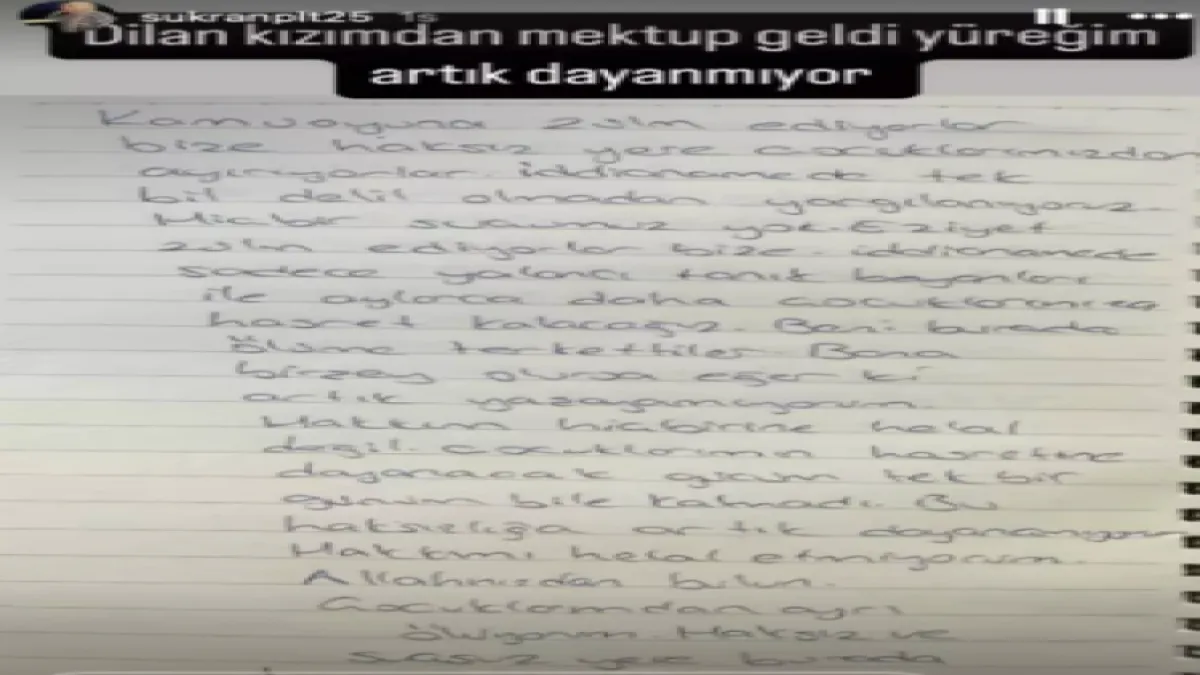 sukranplt25 1s
Dilan kızımdan mektup geldi yüreğim
artık dayanmıyor
Kamuoyuna zulm ediyorlar
bize haksız yere çocuklarımızdan
ayırıyorlar. İddianamede tek
bil delil olmadan yargılanıyoruz.
Hiçbir suçumuz yok. Eziyet
zulm ediyorlar bize. iddianamede
sadece yalancı tanık beyanları
ile aylarca daha çocuklarımıza
hasret kalacağız. Beni burada
ölüme terkettiler. Bana
birşey olursa eğer ki
artık yazayamıyorum.
Hakkım hiçbirine helal
değil. Çocuklarımın hasretine
dayanacak gücüm tek bir
günüm bile kalmadı. Bu
haksızlığa artık dayanamıyorum
Hakkımı helal etmiyorum.
Allahınızdan bulun.
Çocuklarımdan ayrı
ölüyorum. Haksız ve
suçsuz yere burada